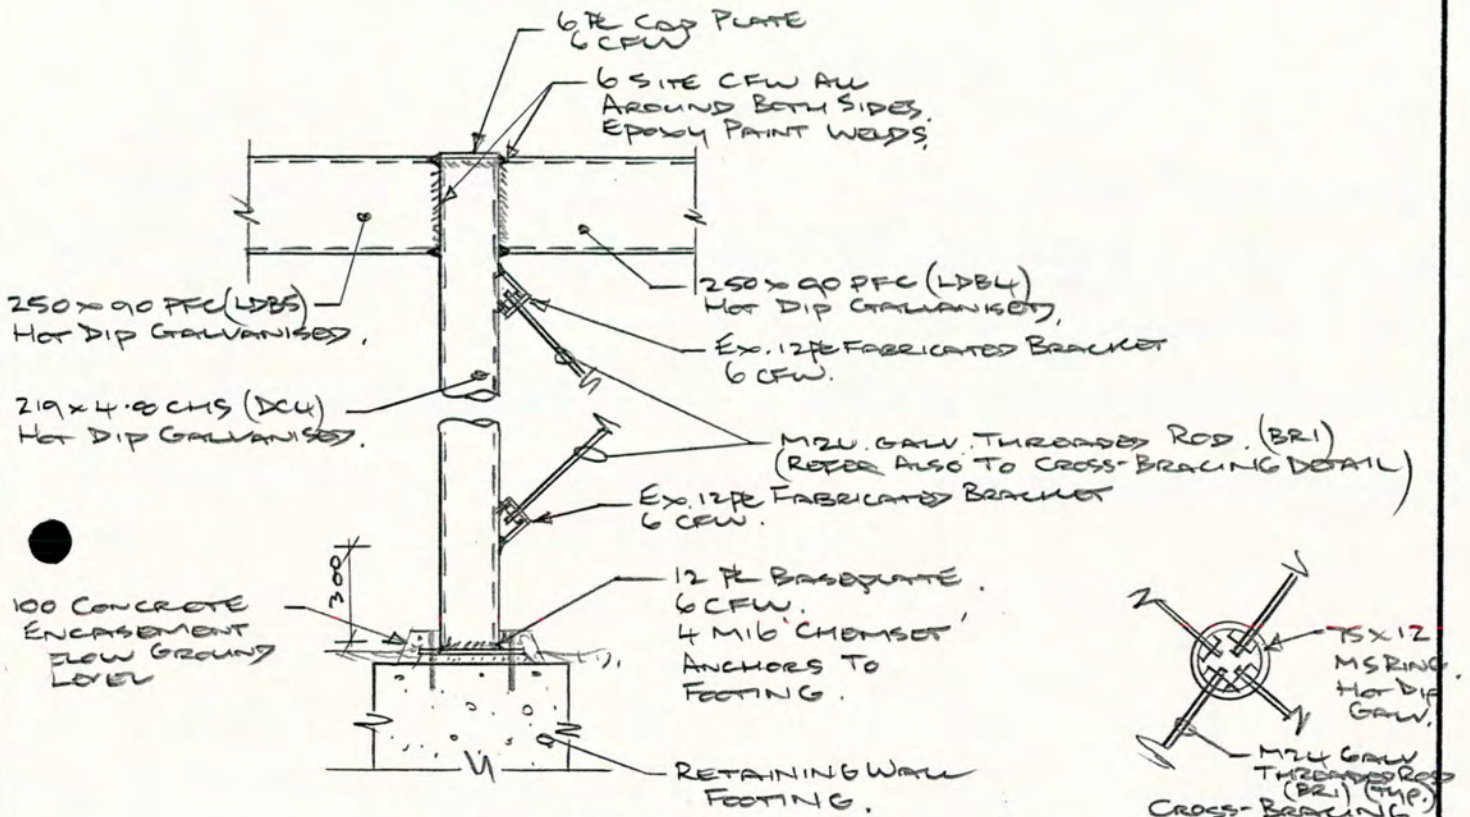 6 PL CAP PLATE
6 CFW
6 SITE CFW ALL
AROUND BOTH SIDES.
EPOXY PAINT WELDS.
250 x 90 PFC (LDB5)
HOT DIP GALVANISED.
250 x 90 PFC (LDB4)
HOT DIP GALVANISED.
EX. 12PL FABRICATED BRACKET
6 CFW.
219 x 4.8 CHS (DC4)
HOT DIP GALVANISED.
M24 GALV. THREADED ROD. (BR1)
(REFER ALSO TO CROSS-BRACING DETAIL)
EX. 12PL FABRICATED BRACKET
6 CFW.
300
100 CONCRETE
ENCASEMENT
ELOW GROUND
LEVEL
12 PL BASEPLATE.
6 CFW.
4 M16 'CHEMSET'
ANCHORS TO
FOOTING.
RETAINING WALL
FOOTING.
75 x 12
MS RING.
HOT DIP
GALV.
M24 GALV
THREADED ROD
(BR1) (TYP.)
CROSS-BRACING